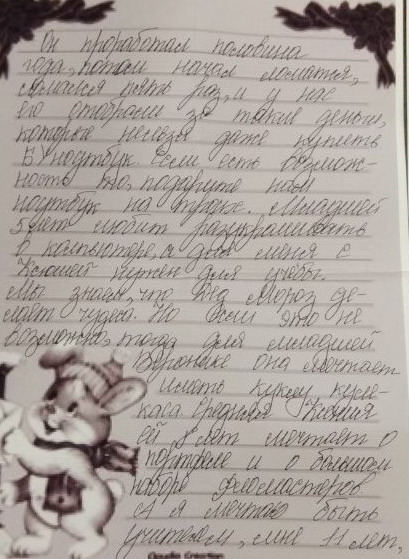 Он проработал половина
года, потом начал ломатся,
сломался пять раз, и у нас
его отобрали за такие деньги,
которые нельзя даже купить
Б/У ноутбук. Если есть возмож-
ность то, подарите нам
ноутбук на троих. Младшей
5 лет любит разукрашивать
в компьютере, а для меня с
Ксюшей нужен для учёбы.
Мы знаем, что Дед Мороз де-
лает чудеса. Но если это не
возможно, тогда для младшей
Веронике она мечтает
иметь куклу
Средняя Ксения
ей 8 лет мечтает о
портфеле и о большом
наборе фломастеров
А я мечтаю быть
учителем, мне 11 лет,